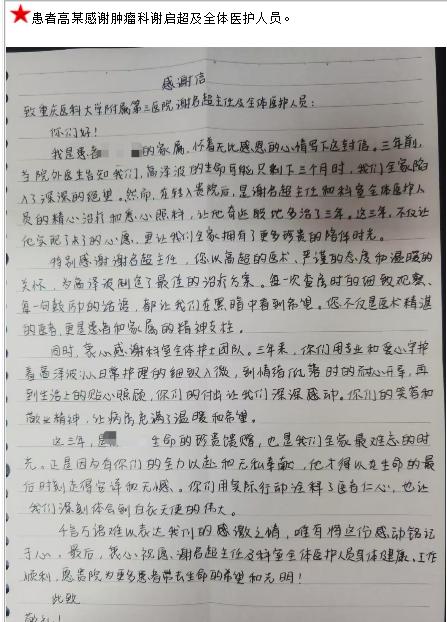 ★患者高某感谢肿瘤科谢启超及全体医护人员。
感谢信
致重庆医科大学附属第三医院谢启超主任及全体医护人员:
你们好!
我是患者 的家属,怀着无比感恩的心情写下这封信。三年前,
当院外医生告知我们,高泽波的生命可能只剩下三个月时,我们全家陷
入了深深的绝望。然而,在转入贵院后,是谢启超主任和科室全体医护人
员的精心治疗和悉心照料,让他奇迹般地多活了三年。这三年,不仅让
他实现了未了的心愿,更让我们全家拥有了更多珍贵的陪伴时光。
特别感谢谢启超主任,您以高超的医术、严谨的态度和温暖的
关怀,为高泽波制定了最佳的治疗方案。每一次查房时的细致观察、
每一句鼓励的话语,都让我们在黑暗中看到希望。您不仅是医术精湛
的医者,更是患者和家属的精神支柱。
同时,衷心感谢科室全体护士团队。三年来,你们用专业和爱心守护
着高泽波,从日常护理的细致入微,到情绪低落时的耐心开导,再
到生活上的贴心照顾,你们的付出让我们深深感动。你们的笑容和
敬业精神,让病房充满了温暖和希望。
这三年,是 生命的珍贵馈赠,也是我们全家最难忘的时
光。正是因为有你们的全力以赴和无私奉献,他才得以在生命的最
后时刻走得安详和无憾。你们用实际行动诠释了医者仁心,也让
我们深刻体会到白衣天使的伟大。
千言万语难以表达我们的感激之情,唯有将这份感动铭记
于心。最后,衷心祝愿谢启超主任及科室全体医护人员身体健康、工作
顺利,愿贵院为更多患者带去生命的希望和光明!
此致
敬礼!